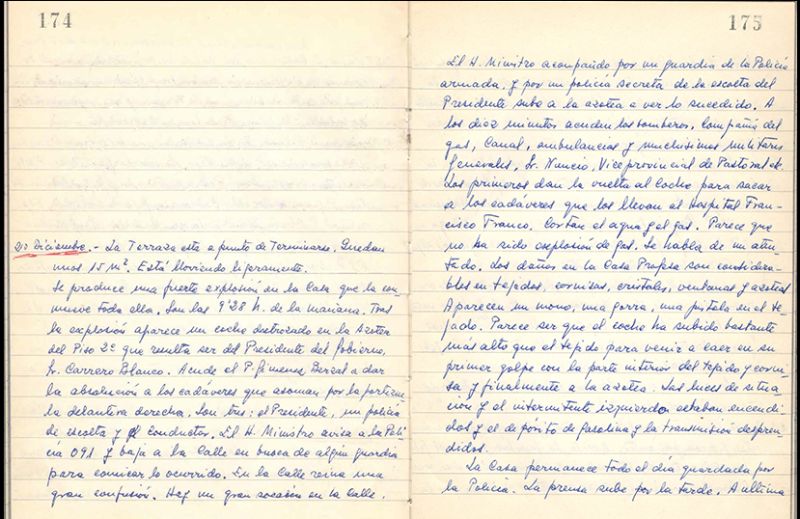 174
20 Diciembre.- La Terraza esta a punto de Terminarse. Quedan
unos 15 m². Está lloviendo ligeramente.
Se produce una fuerte explosión en la Casa que la con-
mueve toda ella. Son las 9'28 h. de la mañana. Tras
la explosión aparece un coche destrozado en la Azotea
del Piso 2º que resulta ser del Presidente del Gobierno,
Sr. Carrero Blanco. Acude el P. Jimenez Berzal a dar
la absolución a los cadáveres que asoman por la portezue-
la delantera derecha. Son tres: el Presidente, un policía
de escolta y el conductor. El H. Ministro avisa a la Poli-
cía 091 y baja a la Calle en busca de algún guardia
para comunicar lo ocurrido. En la Calle reina una
gran confusión. Hay un gran socavón en la Calle.
175
El H. Ministro acompañado por un guardia de la Policía
armada, y por un policía secreta de la escolta del
Presidente sube a la azotea a ver lo sucedido. A
los diez minutos acuden los bomberos, Compañía del
gas, Canal, ambulancias y muchísimos militares
Generales, Sr. Nuncio, Viceprovincial de Pastoral etc.
Los primeros dan la vuelta al Coche para sacar
a los cadáveres que los llevan al Hospital Fran-
cisco Franco. Cortan el agua y el gas. Parece que
no ha sido explosión de gas. Se habla de un aten-
tado. Los daños en la Casa Profesa son considera-
bles en tejados, cornisas, cristales, ventanas y azoteas
Aparecen un mono, una gorra, una pistola en el te-
jado. Parece ser que el coche ha subido bastante
más alto que el tejido para venir a caer en su
primer golpe con la parte interior del tejido y corni-
sa y finalmente a la azotea. Las luces de situa-
ción y el intermitente izquierdo estaban encendi-
dos y el depósito de gasolina y la transmisión despren-
didos.
La Casa permanece todo el día guardada por
la Policía. La prensa sube por la tarde. A última